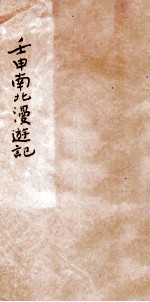 壬申南北漫遊記